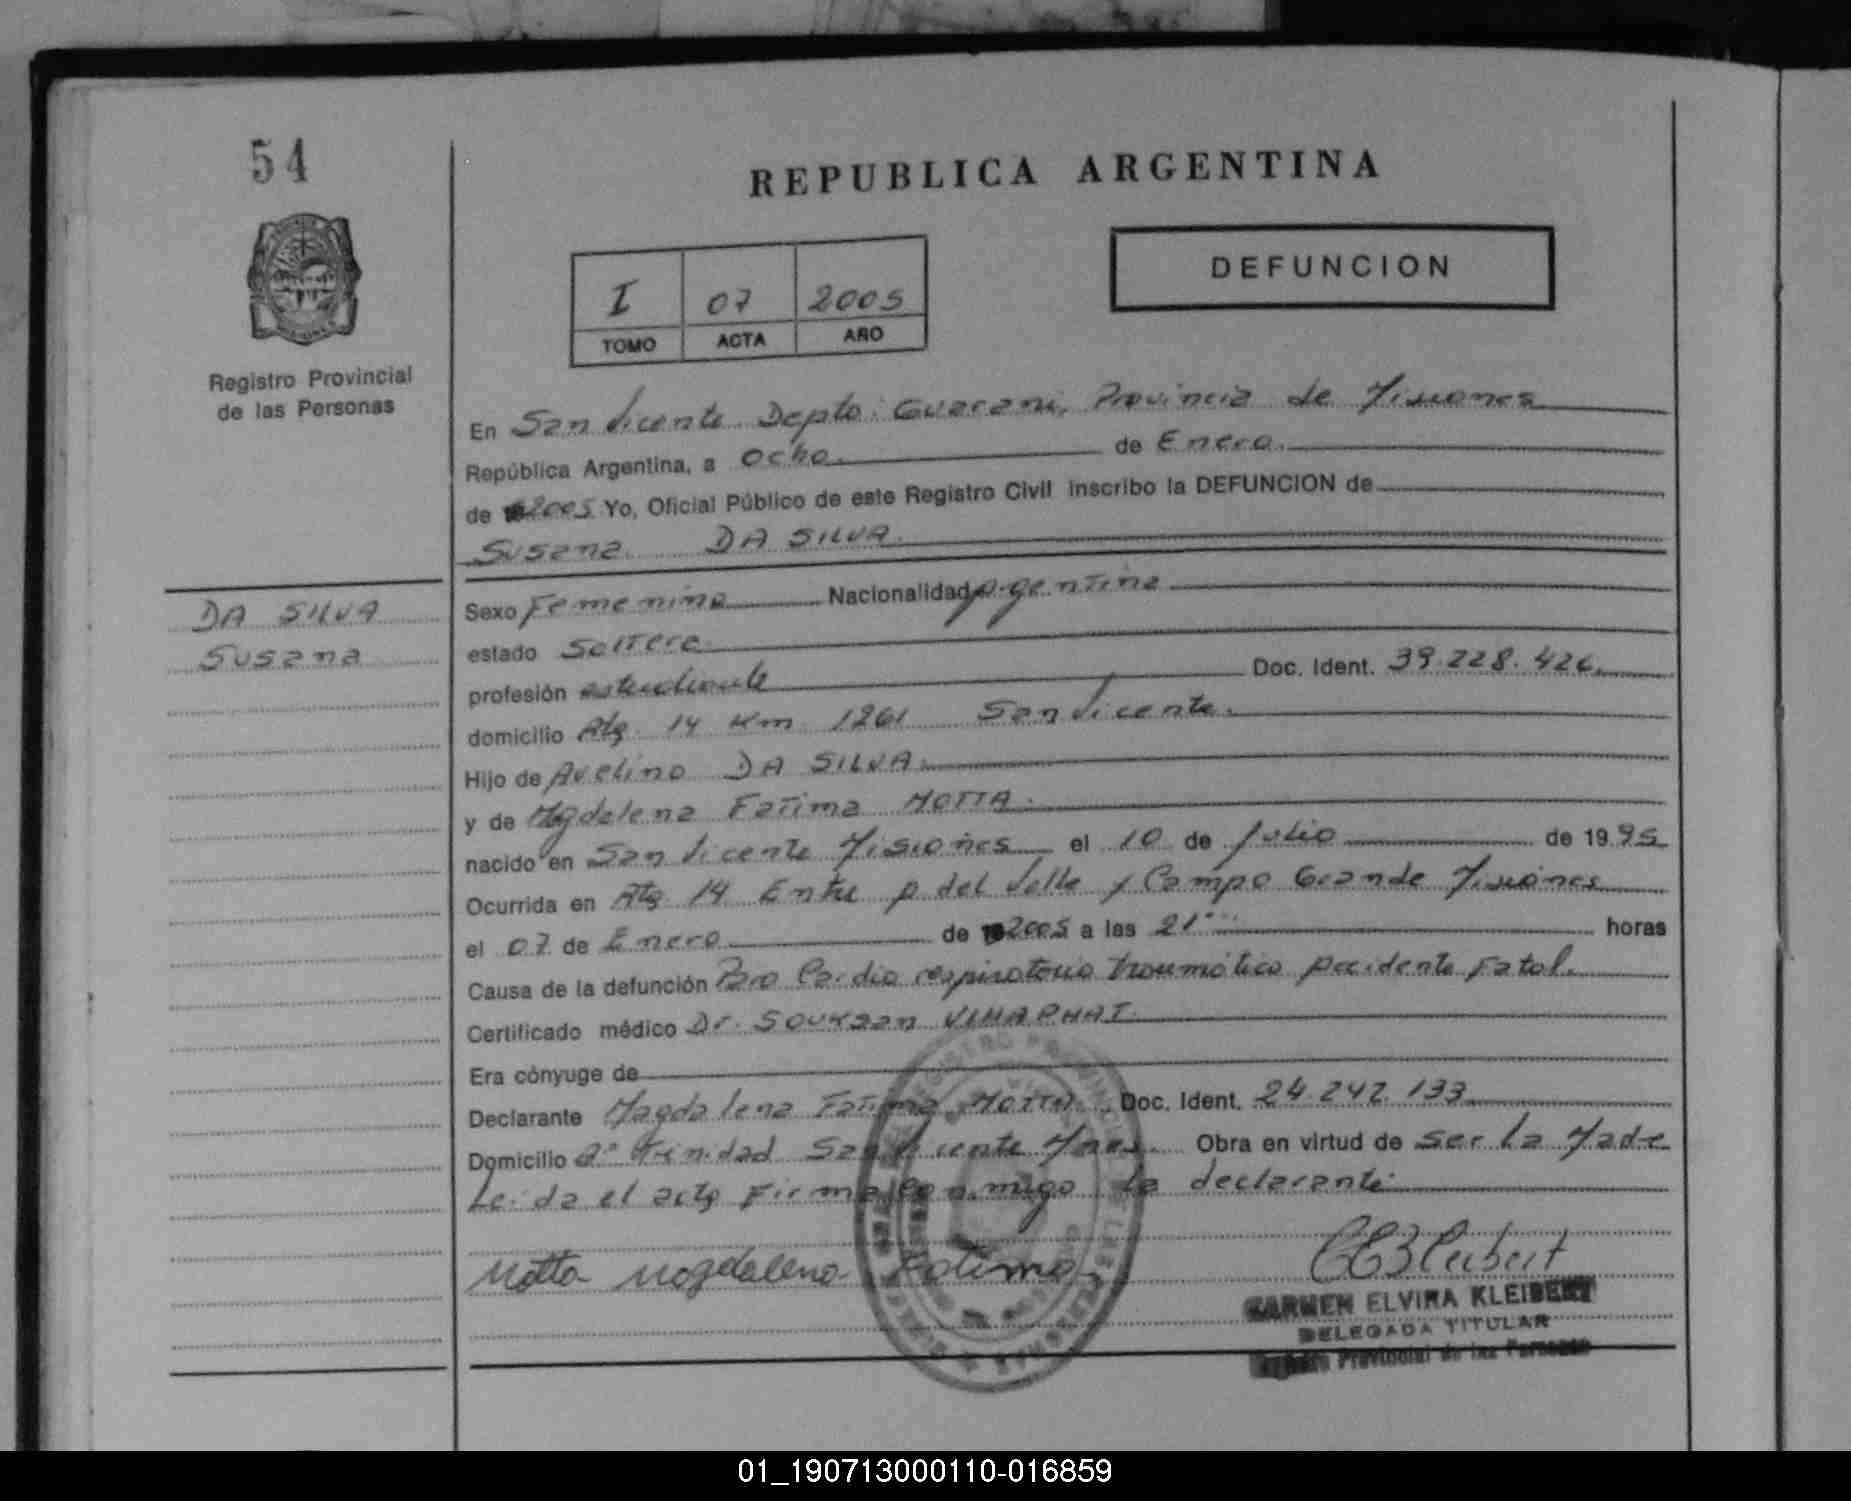 54
REPUBLICA ARGENTINA
DEFUNCION
I 07 2005
TOMO ACTA AÑO
Registro Provincial
de las Personas
En San Vicente Depto: Guarani, Provincia de Misiones
República Argentina, a Ocho. de Enero.
de 2005 Yo, Oficial Público de este Registro Civil inscribo la DEFUNCION de
Susana DA SILVA.
DA SILVA
Susana
Sexo Femenino Nacionalidad Argentina
estado Soltera.
profesión estudiante Doc. Ident. 39.228.426.
domicilio Rta. 14 Km 1261 San Vicente.
Hijo de Avelino DA SILVA.
y de Magdalena Fatima MOTTA.
nacido en San Vicente Misiones el 10 de Julio de 19.95
Ocurrida en Rta 14 Entre p del Valle y Campo Grande Misiones
el 07 de Enero de 2005 a las 21 horas
Causa de la defunción Paro Cardio respiratorio traumático Accidente Fatal.
Certificado médico Dr. SOUKSAN VIMAPHAT.
Era cónyuge de
Declarante Magdalena Fatima MOTTA. Doc. Ident. 24.242.133
Domicilio Bº Trinidad San Vicente Mnes. Obra en virtud de ser la Madre
Leida el acta Firma Conmigo la declarante.
Motta Magdalena Fatima
CARMEN ELVIRA KLEIBERT
DELEGADA TITULAR
Registro Provincial de las Personas
01_190713000110-016859